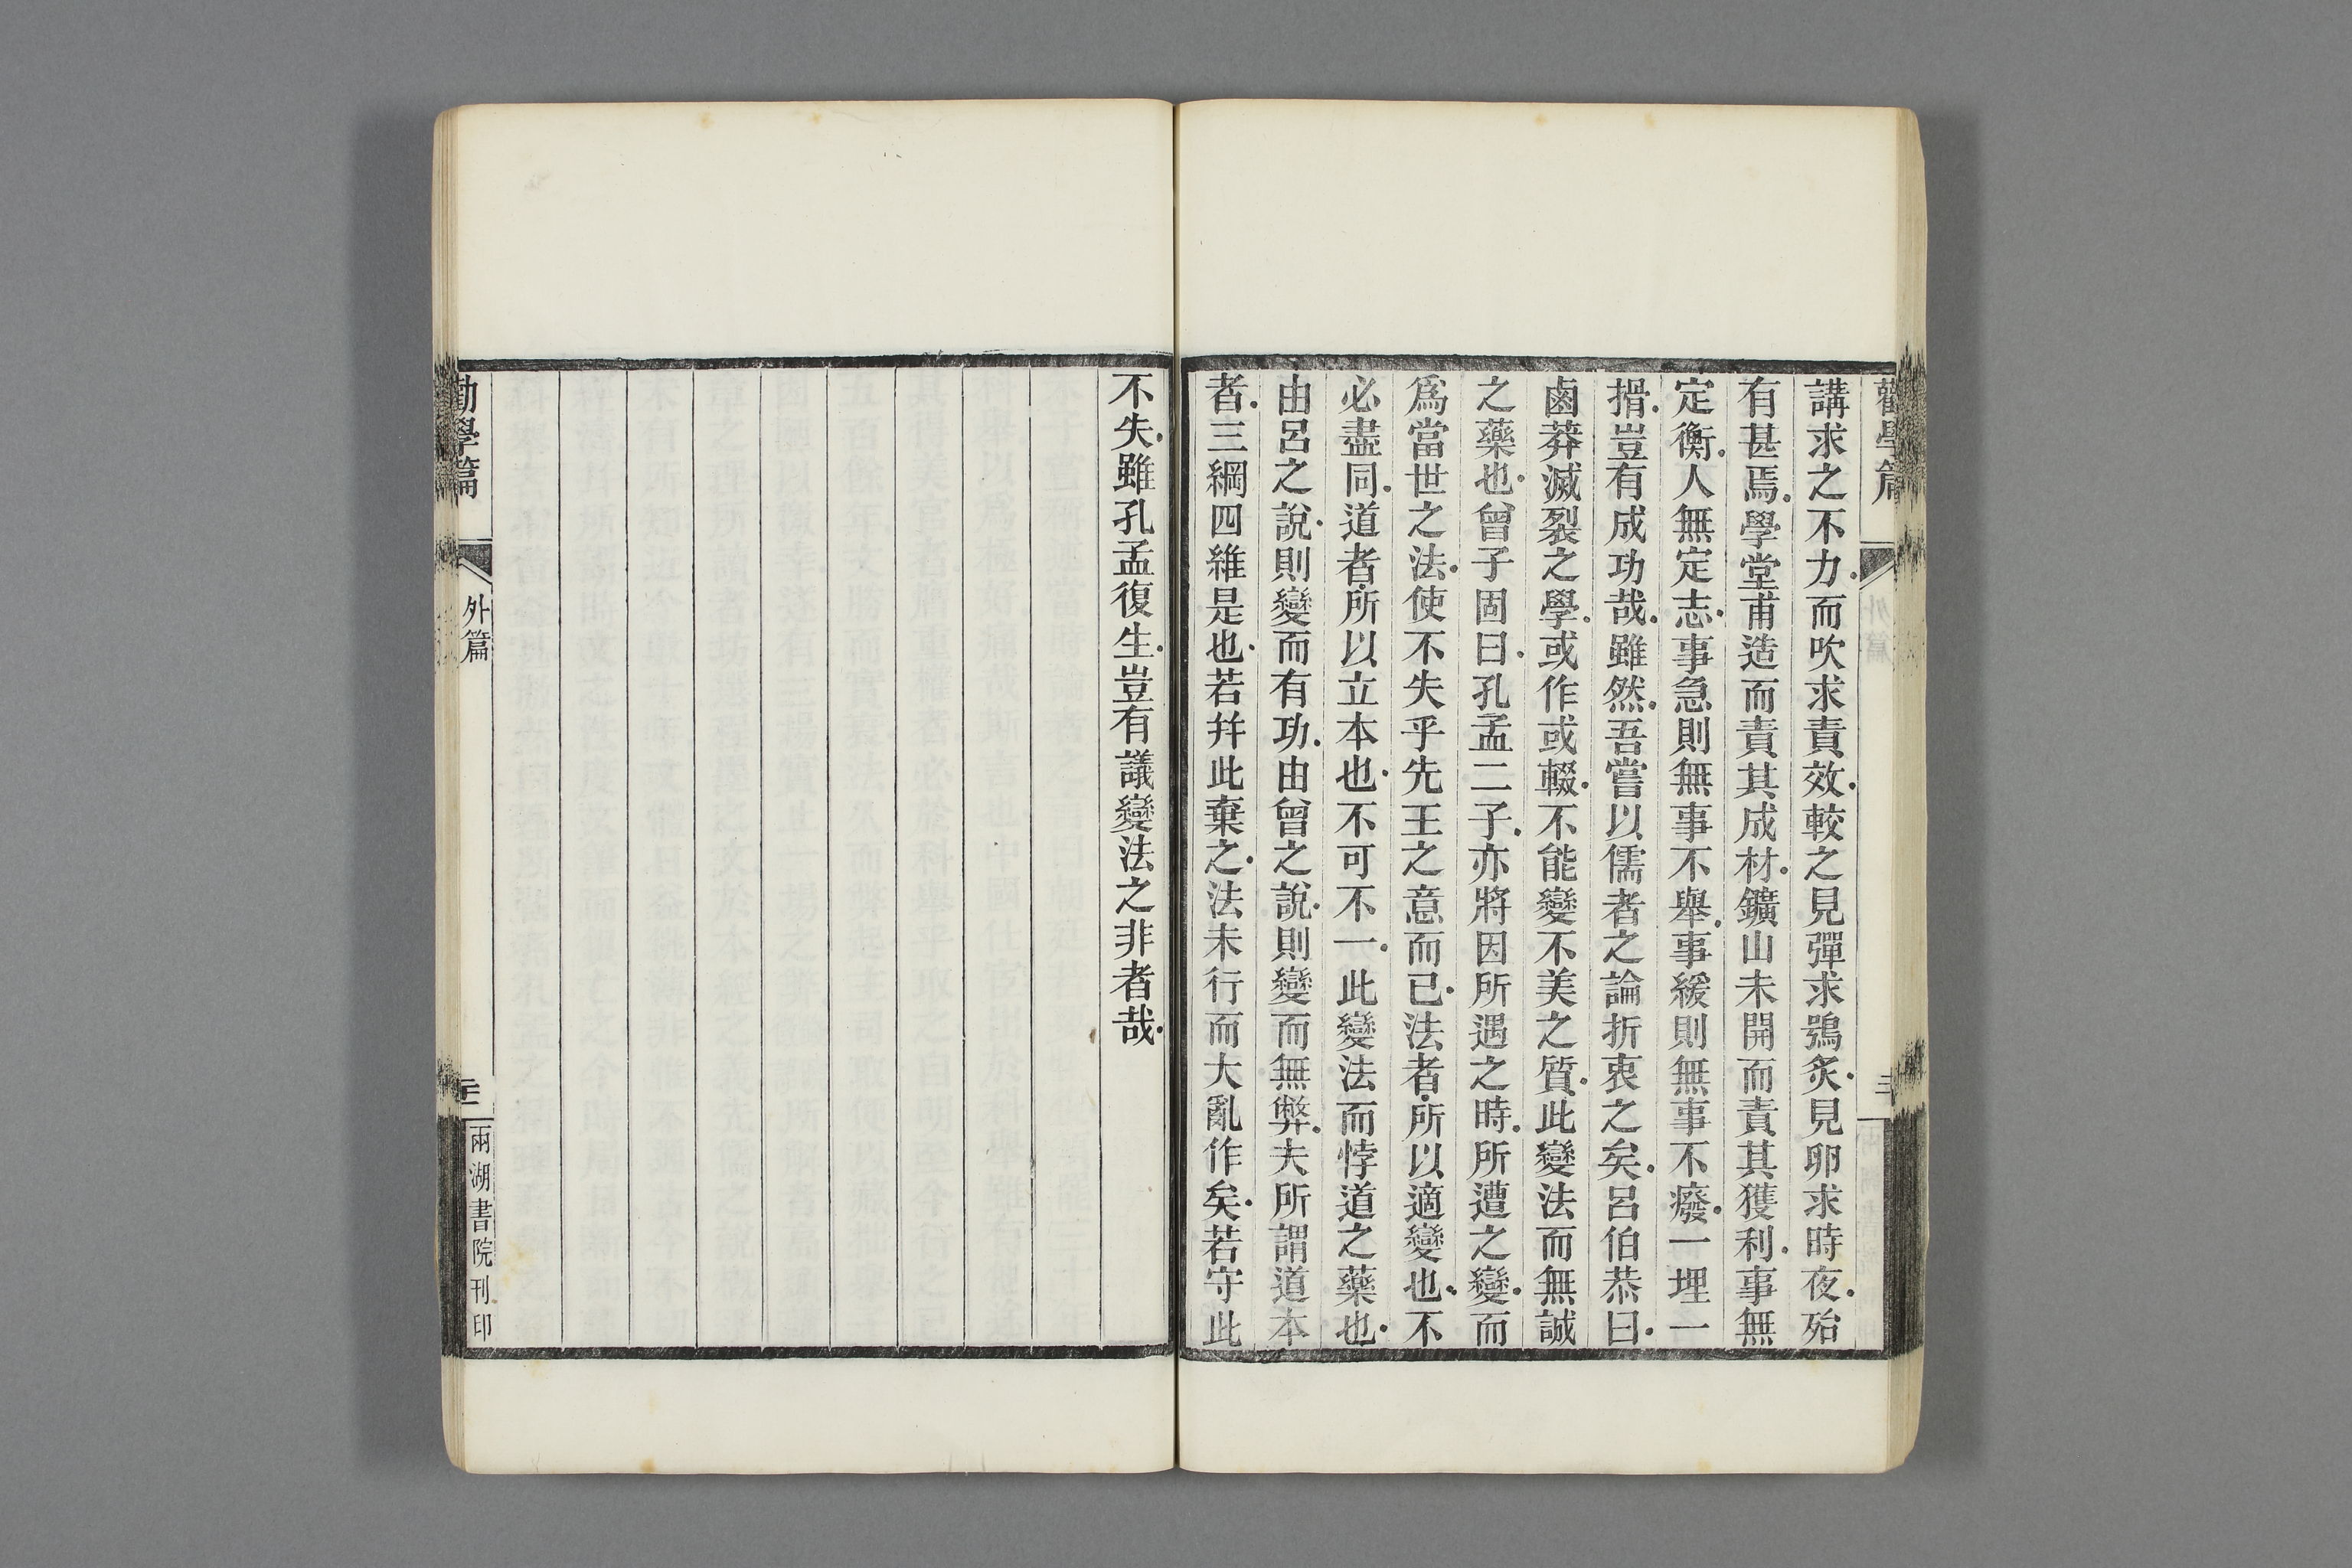 勸學篇
講求之不力而吹求責效較之見彈求鴞炙見卵求時夜殆
有甚焉學堂甫造而責其成材鑛山未開而責其獲利事無
定衡人無定志事急則無事不舉事緩則無事不癈一埋一
搰豈有成功哉雖然吾嘗以儒者之論折衷之矣呂伯恭曰
鹵莽滅裂之學或作或輟不能變不美之質此變法而無誠
之藥也曾子固曰孔孟二子亦將因所遇之時所遭之變而
爲當世之法使不失乎先王之意而已法者所以適變也不
必盡同道者所以立本也不可不一此變法而悖道之藥也
由呂之說則變而有功由曾之說則變而無弊夫所謂道本
者三綱四維是也若幷此棄之法未行而大亂作矣若守此
不失雖孔孟復生豈有議變法之非者哉
勸學篇
外篇
兩湖書院刊印